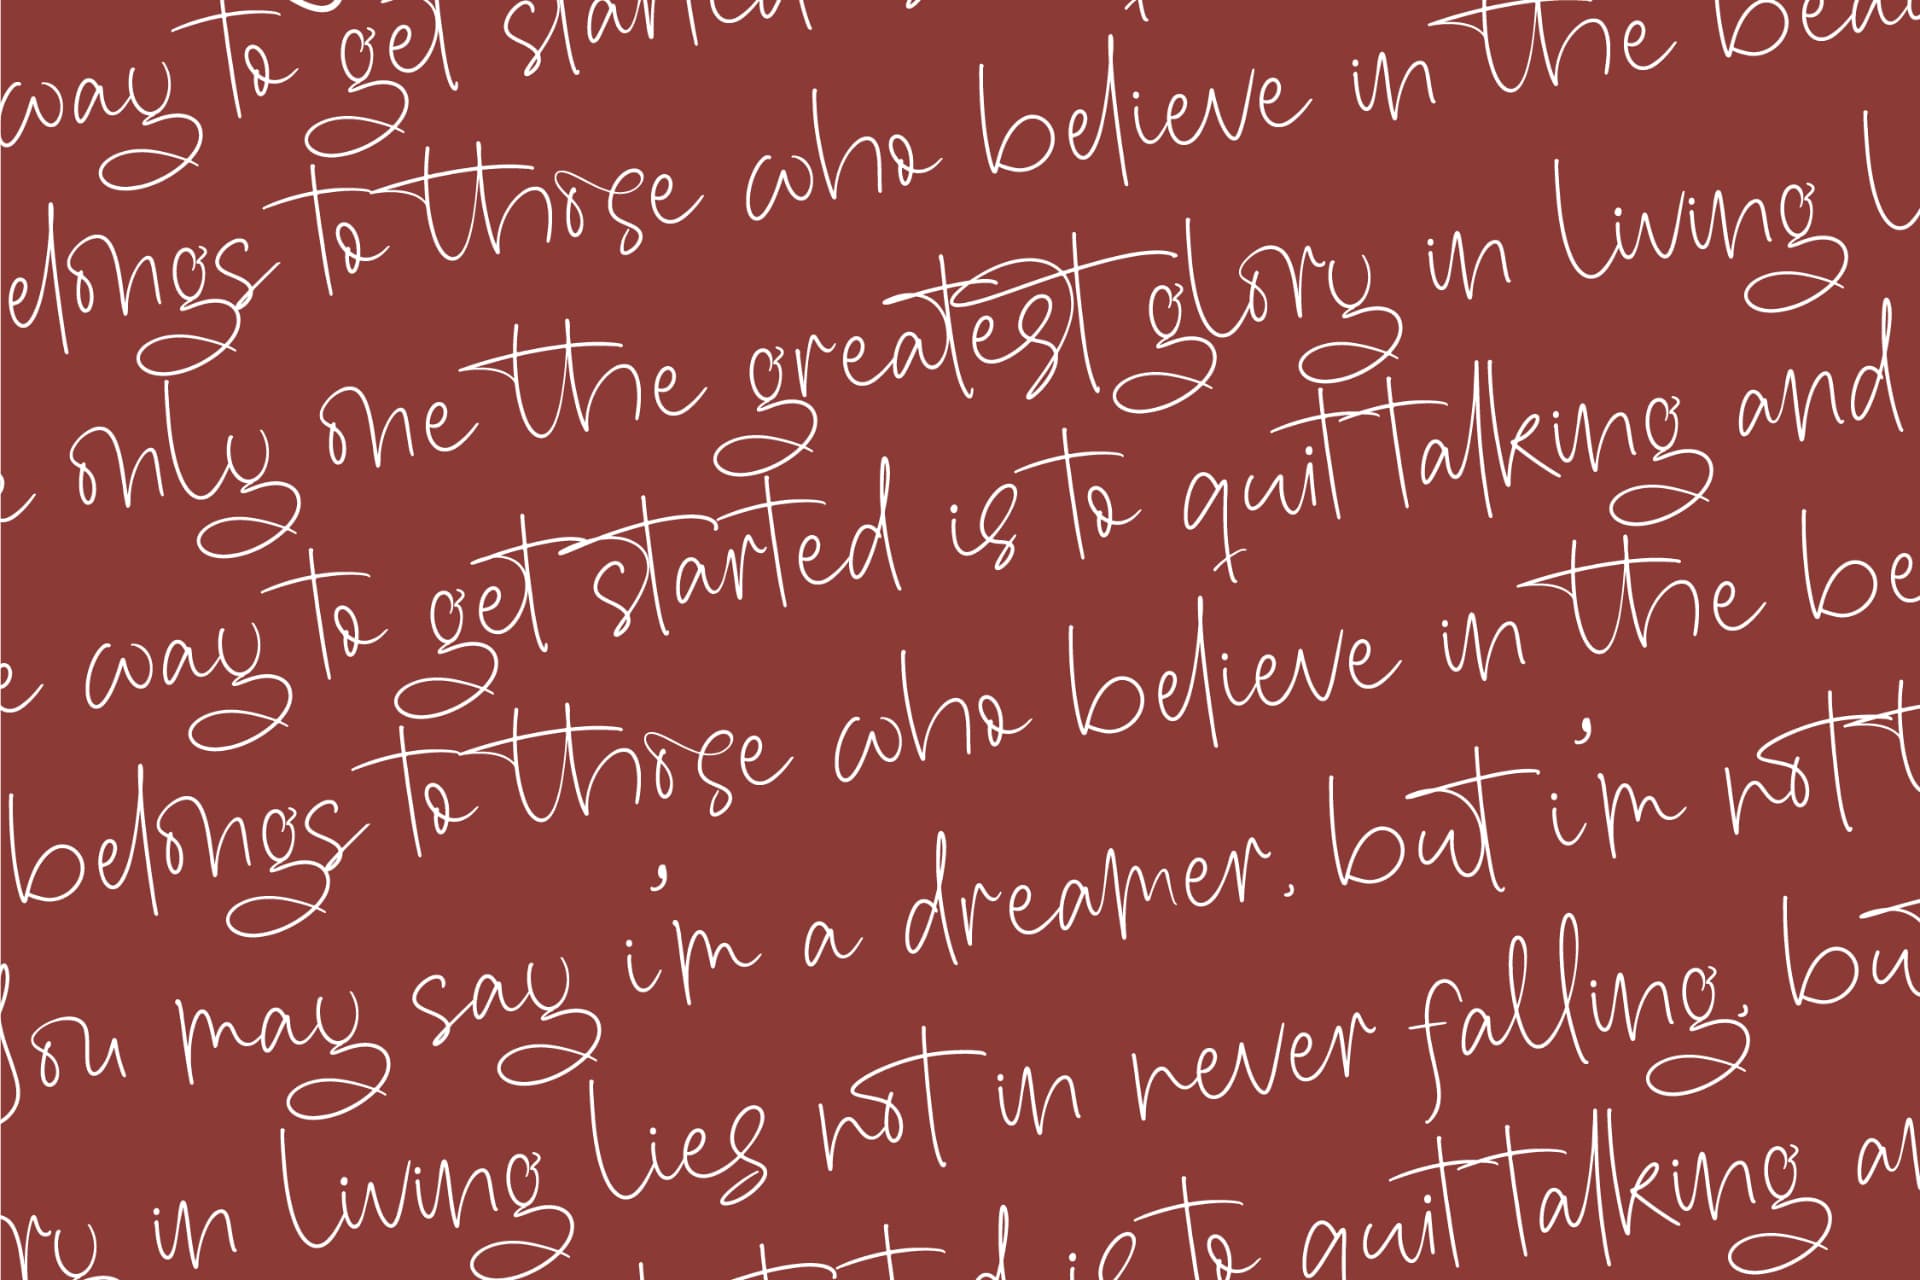 way to get started
elongs to those who believe in the beau
e only one the greatest glory in living l
e way to get started is to quit talking and
belongs to those who believe in the be
you may say i'm a dreamer, but i'm not t
ry in living lies not in never falling, bu
started is to quit talking an